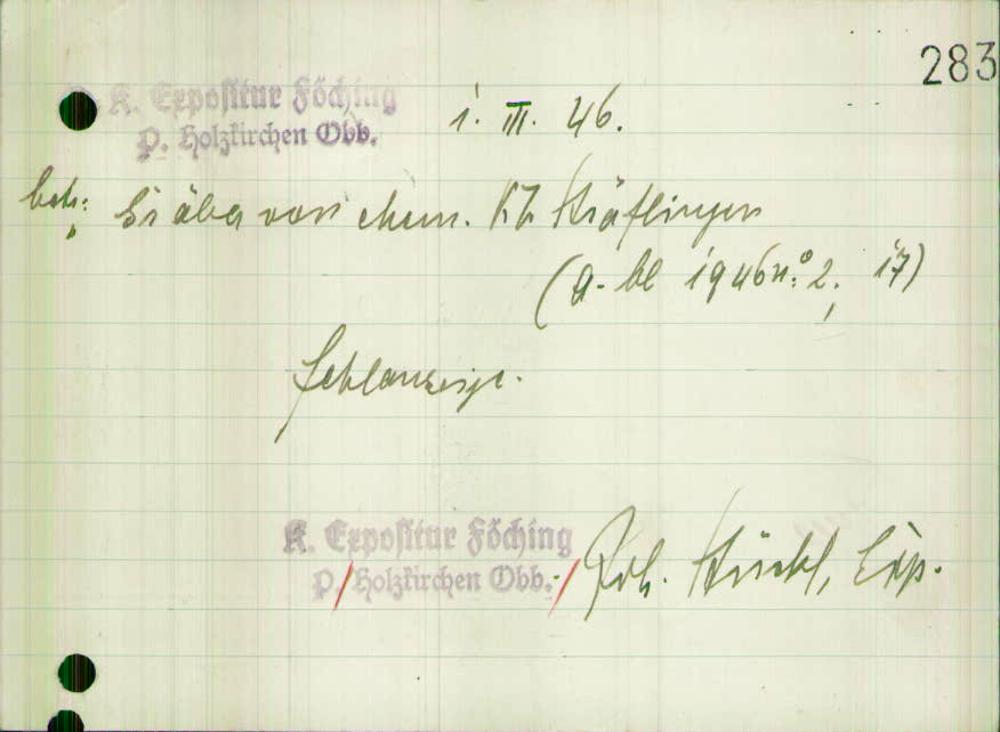 283
K. Expositur Föching
P. Holzkirchen Obb.
1. III. 46.
betr.: Gräber von ehem. KZ Häftlingen
(A-bl 1946 N.° 2, 17)
Fehlanzeige.
K. Expositur Föching
P. Holzkirchen Obb.
Joh. Stückl, Exp.